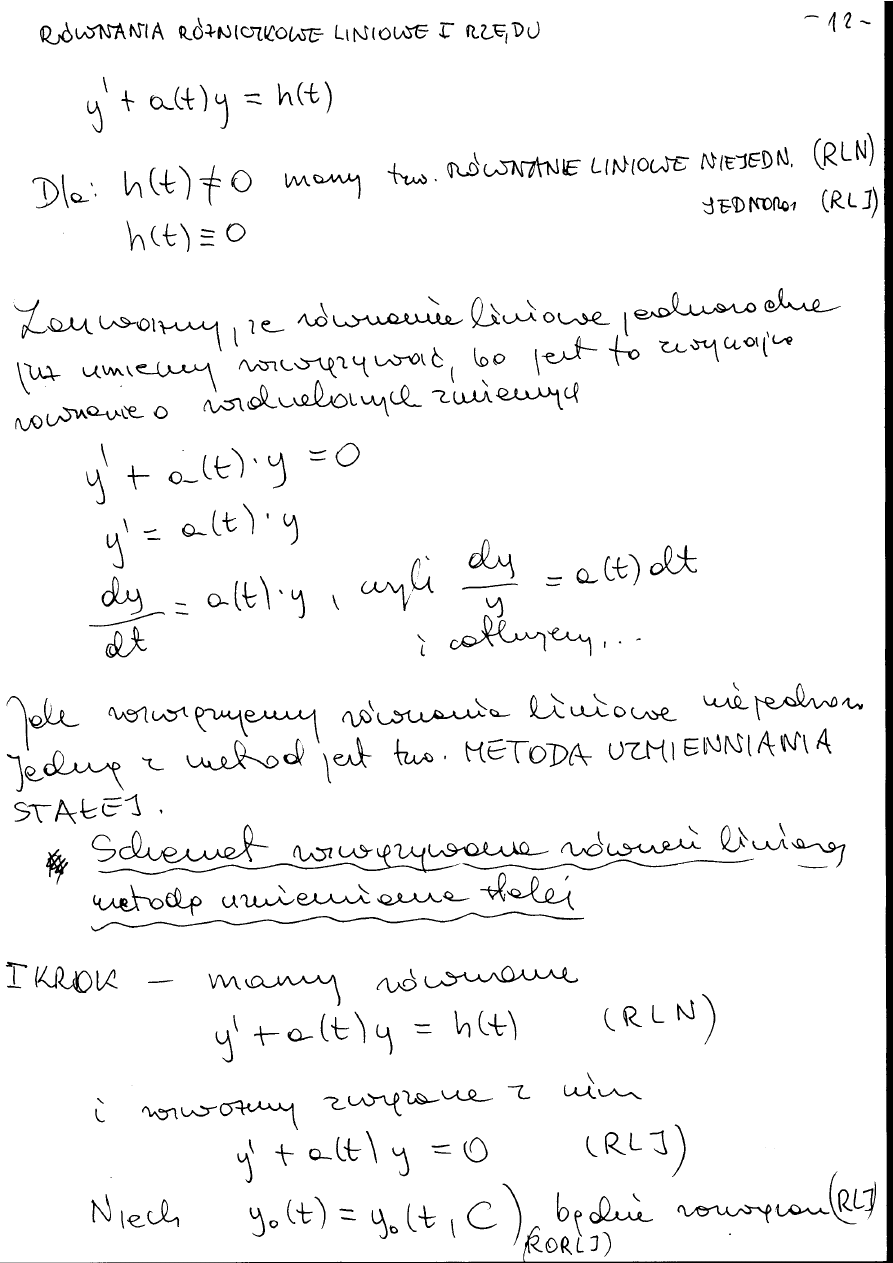 RÓWNANIA RÓŻNICZKOWE LINIOWE I RZĘDU
-12-
y' + a(t)y = h(t)
Dla: h(t) ≠ 0 mamy tzw. RÓWNANIE LINIOWE NIEJEDN. (RLN)
h(t) ≡ 0 JEDNORO. (RLJ)
Zauważmy, że równanie liniowe jednorodne
już umiemy rozwiązywać, bo jest to zwyczajne
równanie o rozdzielonych zmiennych
y' + a(t)·y = 0
y' = a(t)·y
dy/dt = a(t)·y, czyli dy/y = a(t) dt
i całkujemy...
Jak rozwiązujemy równania liniowe niejednor.
Jedną z metod jest tzw. METODA UZMIENNIANIA
STAŁEJ.
Schemat rozwiązywania równań liniowych
metodą uzmienniania stałej
I KROK – mamy równanie
y' + a(t)y = h(t) (RLN)
i rozważmy związane z nim
y' + a(t)y = 0 (RLJ)
Niech y₀(t) = y₀(t, C) będzie rozwiązan (RLJ)
(RORLJ)